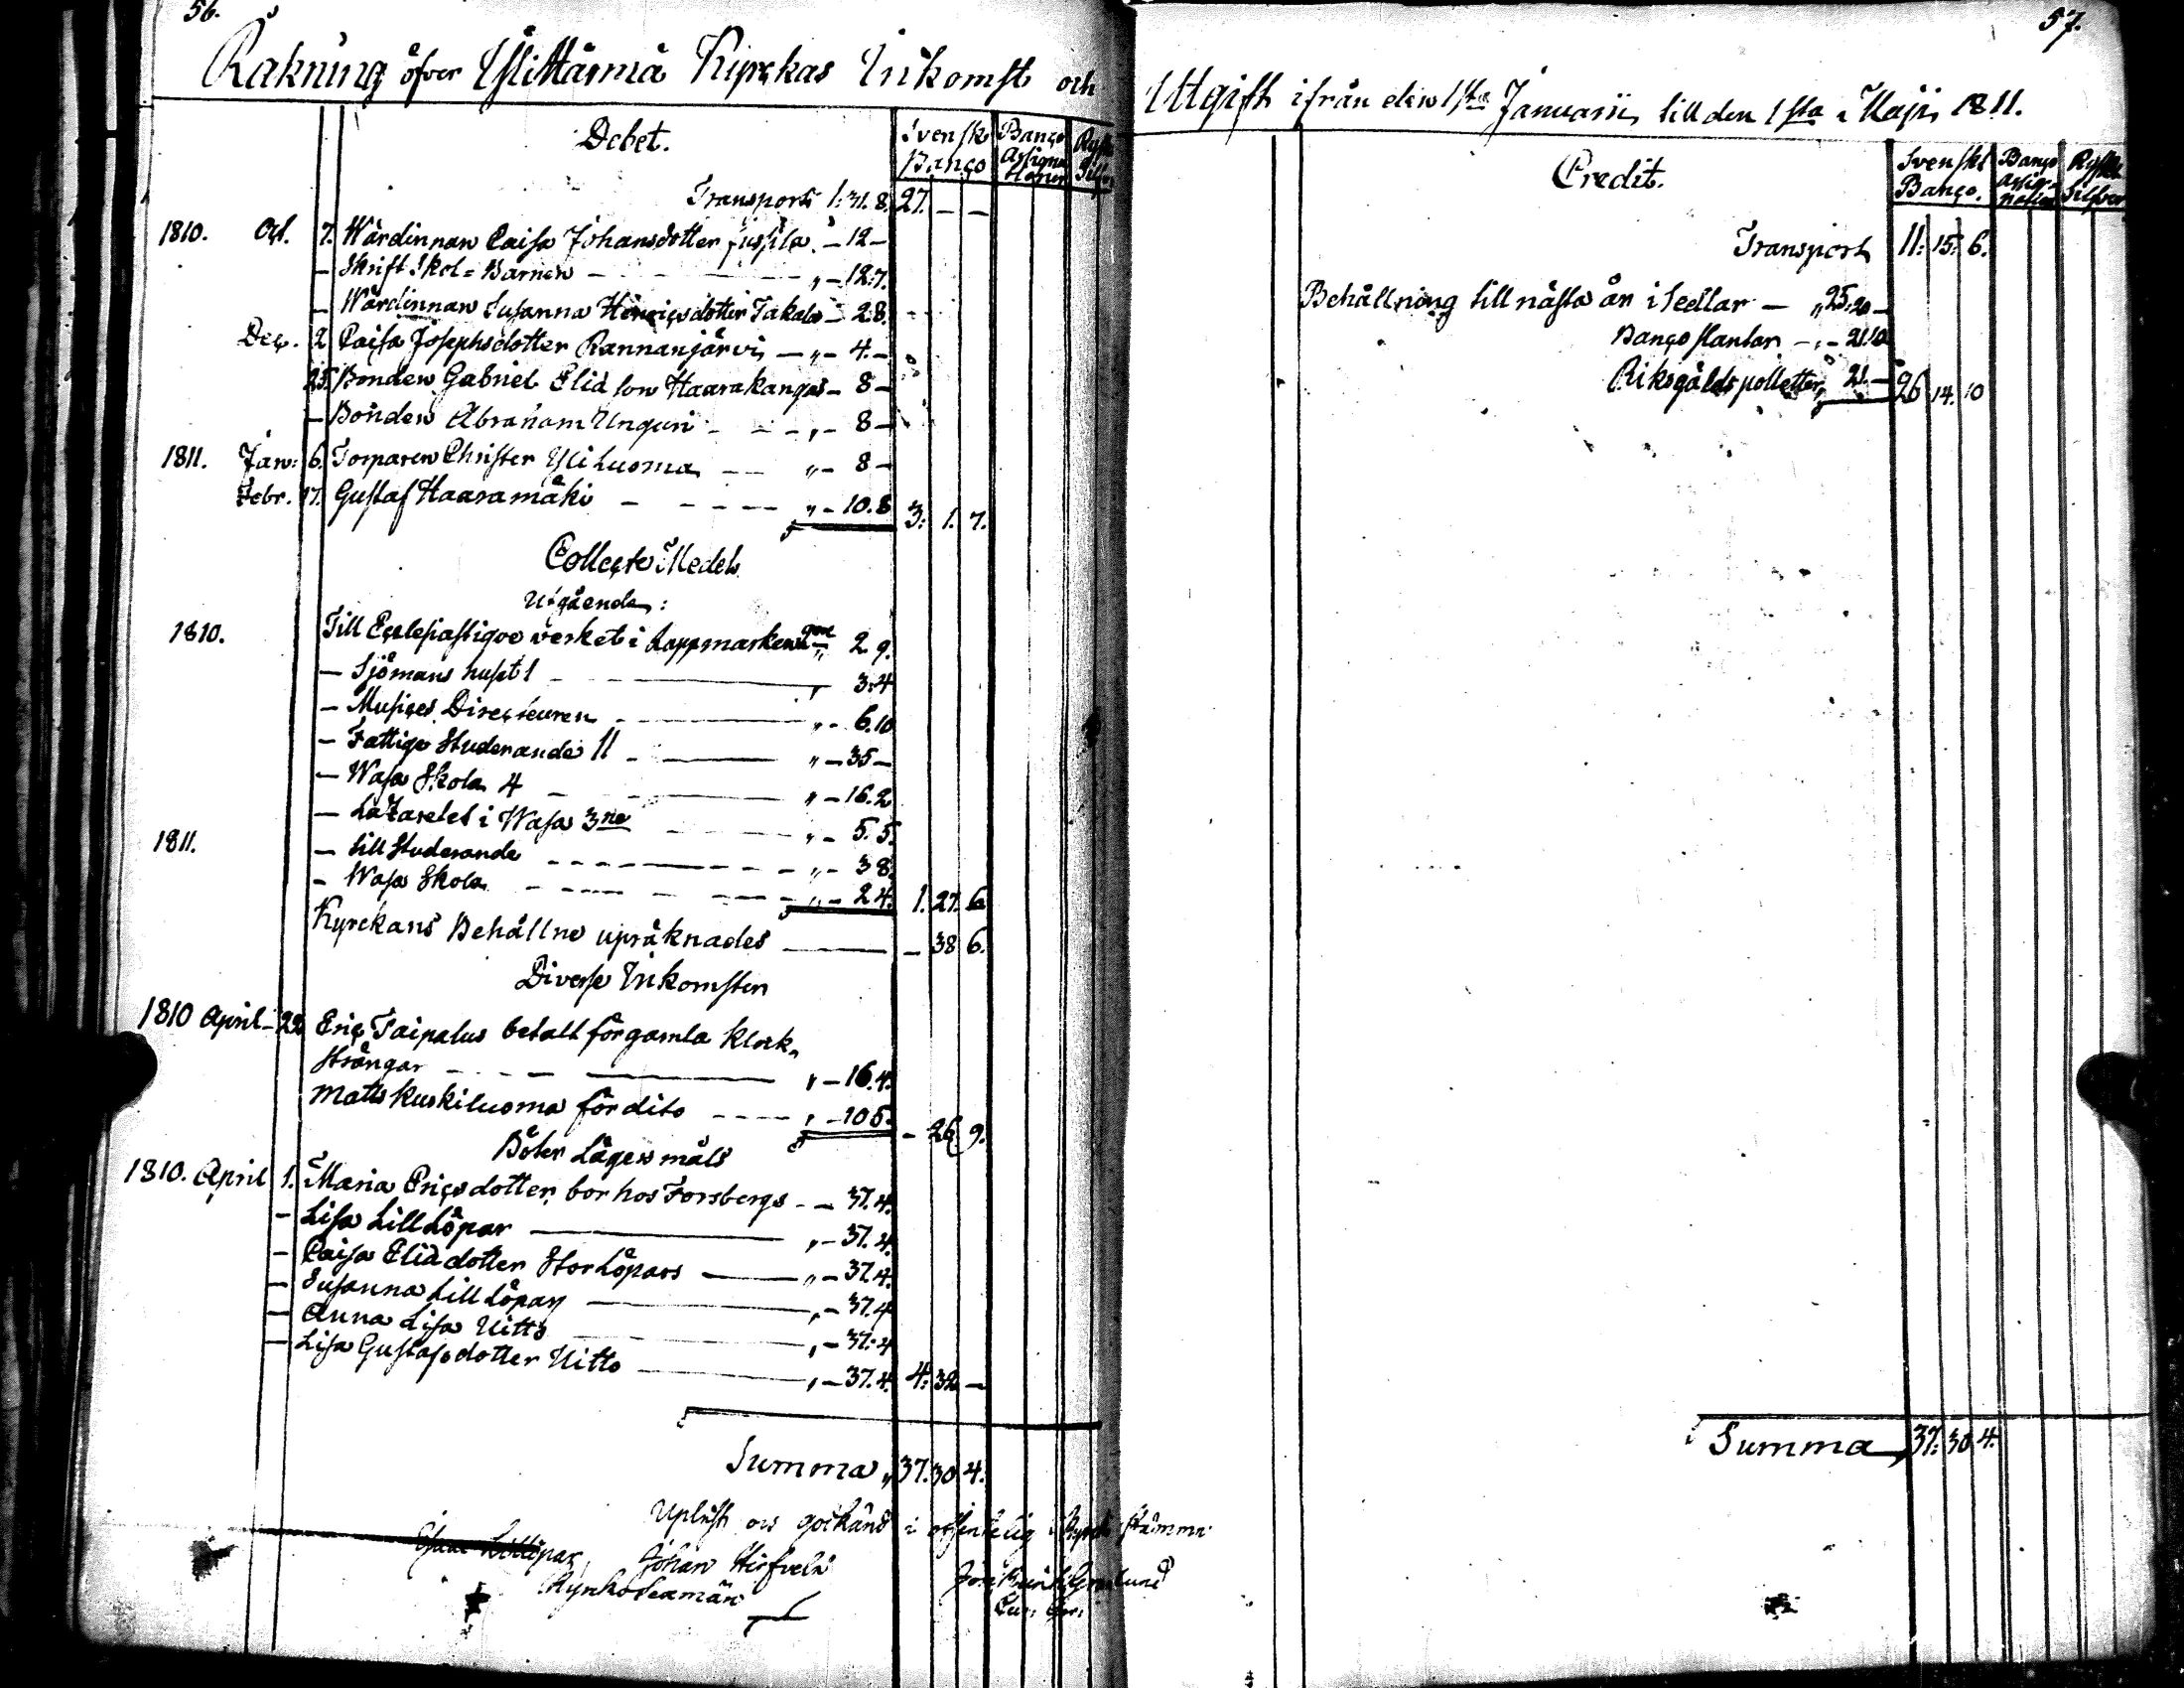 56.
Räkning öfver Ylihärmä Kyrckas Inkomst och
Debet.
Svenskt Banço
Banço Assigna tioner
Ryskt Silfver
Transport 1:31.8. 27. — —
1810. Oct. 7. Wärdinnan Caisa Johansdotter Jussila — 12 —
— Skrift Skol = Barnen — „ — 12:7.
— Wärdinnan Susanna Henricsdotter Takala — 28.
Dec. 2 Caisa Josephsdotter Rannanjärvi — „ — 4. —
25. Bonden Gabriel Eliæ son Haarakangas — 8 —
— Bonden Abraham Unguri — „ — 8 —
1811. Jan: 6. Torparen Christer Yliluoma — „ — 8 —
Febr. 17. Gustaf Haaramäki — „ — 10.8 3: 1. 7.
Collecte Medel
Utgående:
1810. Till Ecclesiastique verket i Lappmarken „ 2. 9.
— Sjömans hust 1 — „ 3:4
— Musices Directeuren — „ — 6.10
— Fattige Studerande 11 — „ — 35 —
— Wasa Skola 4 — „ — 16.2
— Lazaretet i Wasa 3ne — „ — 5.5.
1811. — till Studerande — „ — 3 8.
— Wasa Skola — „ — 2 4. 1. 27. 6
Kyrckans Behållne upräknades — — 38 6.
Diverse Inkomster
1810 April — 22 Eric Taipalus betalt för gamla klock-
strängar — „ — 16.4.
Matts Kuskiluoma för dito — „ — 10 5. — 26 9.
Böter Lägersmåls
1810. April 1. Maria Ericsdotter, bor hos Forsbergs — — 37.4.
— Lisa Lill Löpar — „ — 37.4.
— Caisa Eliædotter Stor Löpars — „ — 37.4.
— Susanna Lill Löpar — „ — 37.4
— Anna Lisa Uitto — „ — 37:4
— Lisa Gustafsdotter Uitto — „ — 37.4. 4: 32 —
Summa „ 37. 30 4.
Uplåst och godkänd i offentelig Kyrck stämma
Johan Hirfvelä
Kyrkovärdman
57.
Utgift ifrån den 1sta Januarii till den 1sta Maji 1811.
Credit.
Svenskt Banço.
Banço Assig-nation
Ryskt Silfver
Transport 11: 15: 6.
Behållning till nästa år i Sedlar — „ 25. 20 —
Banço slantar — „ — 21.10
Riksgälds polletter „ 21. — 26 14. 10
Summa 37: 30 4.